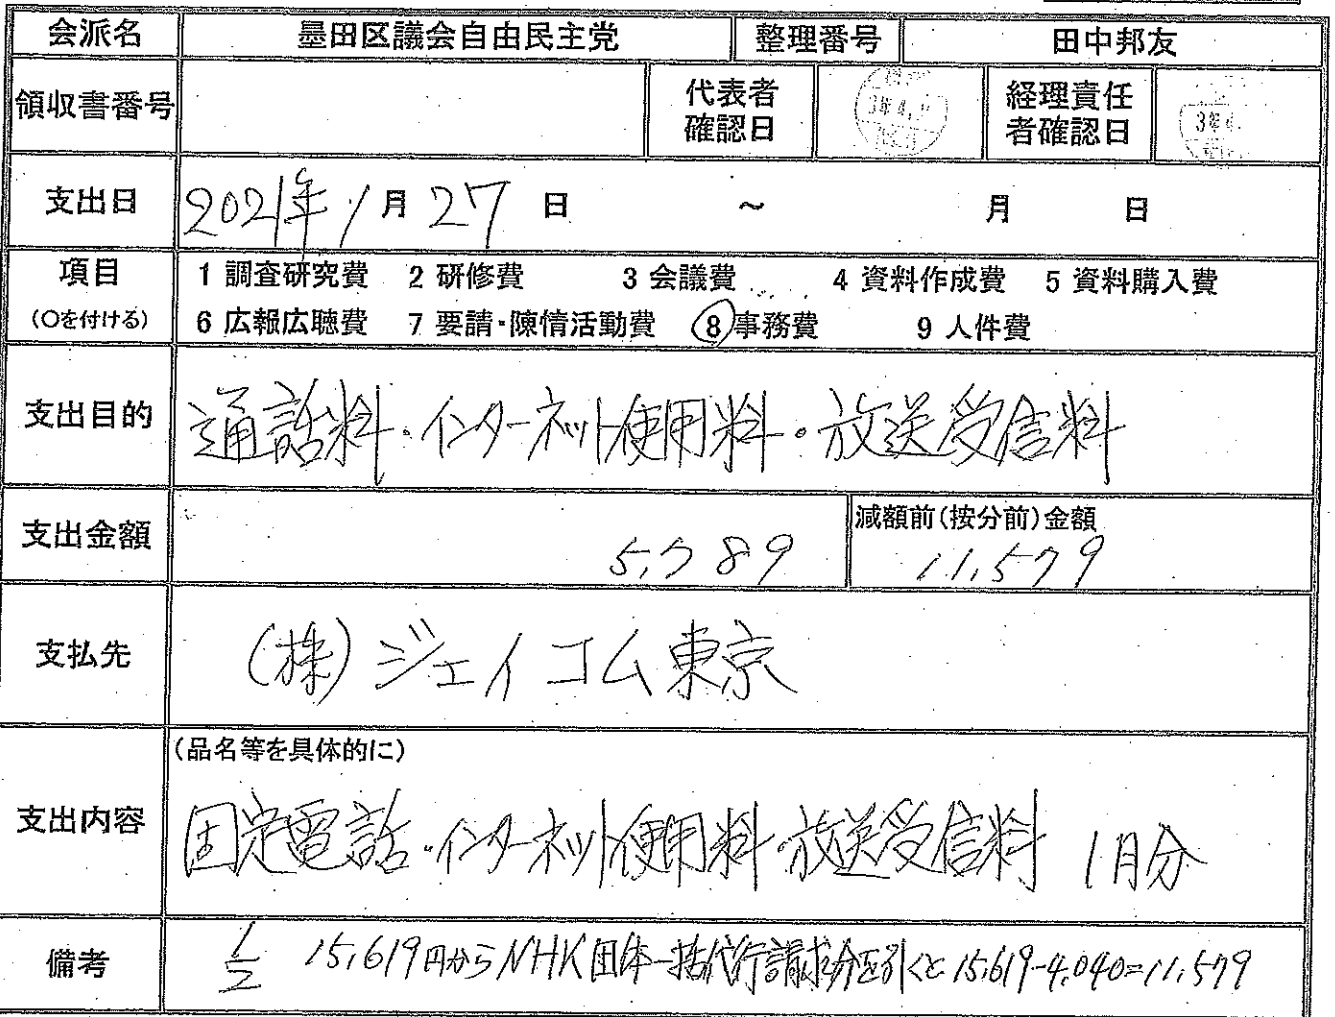 会派名 墨田区議会自由民主党 整理番号 田中邦友
領収書番号 代表者確認日 3年4. 経理責任者確認日 3年4.
支出日 2021年1月27日 ~ 月 日
項目 1 調査研究費 2 研修費 3 会議費 4 資料作成費 5 資料購入費
(○を付ける) 6 広報広聴費 7 要請・陳情活動費 8 事務費 9 人件費
支出目的 通話料・インターネット使用料・放送受信料
支出金額 5,789 減額前(按分前)金額 11,579
支払先 (株)ジェイコム東京
支出内容 (品名等を具体的に)
固定電話・インターネット使用料・放送受信料 1月分
備考 1/2 15,619円からNHK団体一括代行請求分を引くと15,619-4,040=11,579